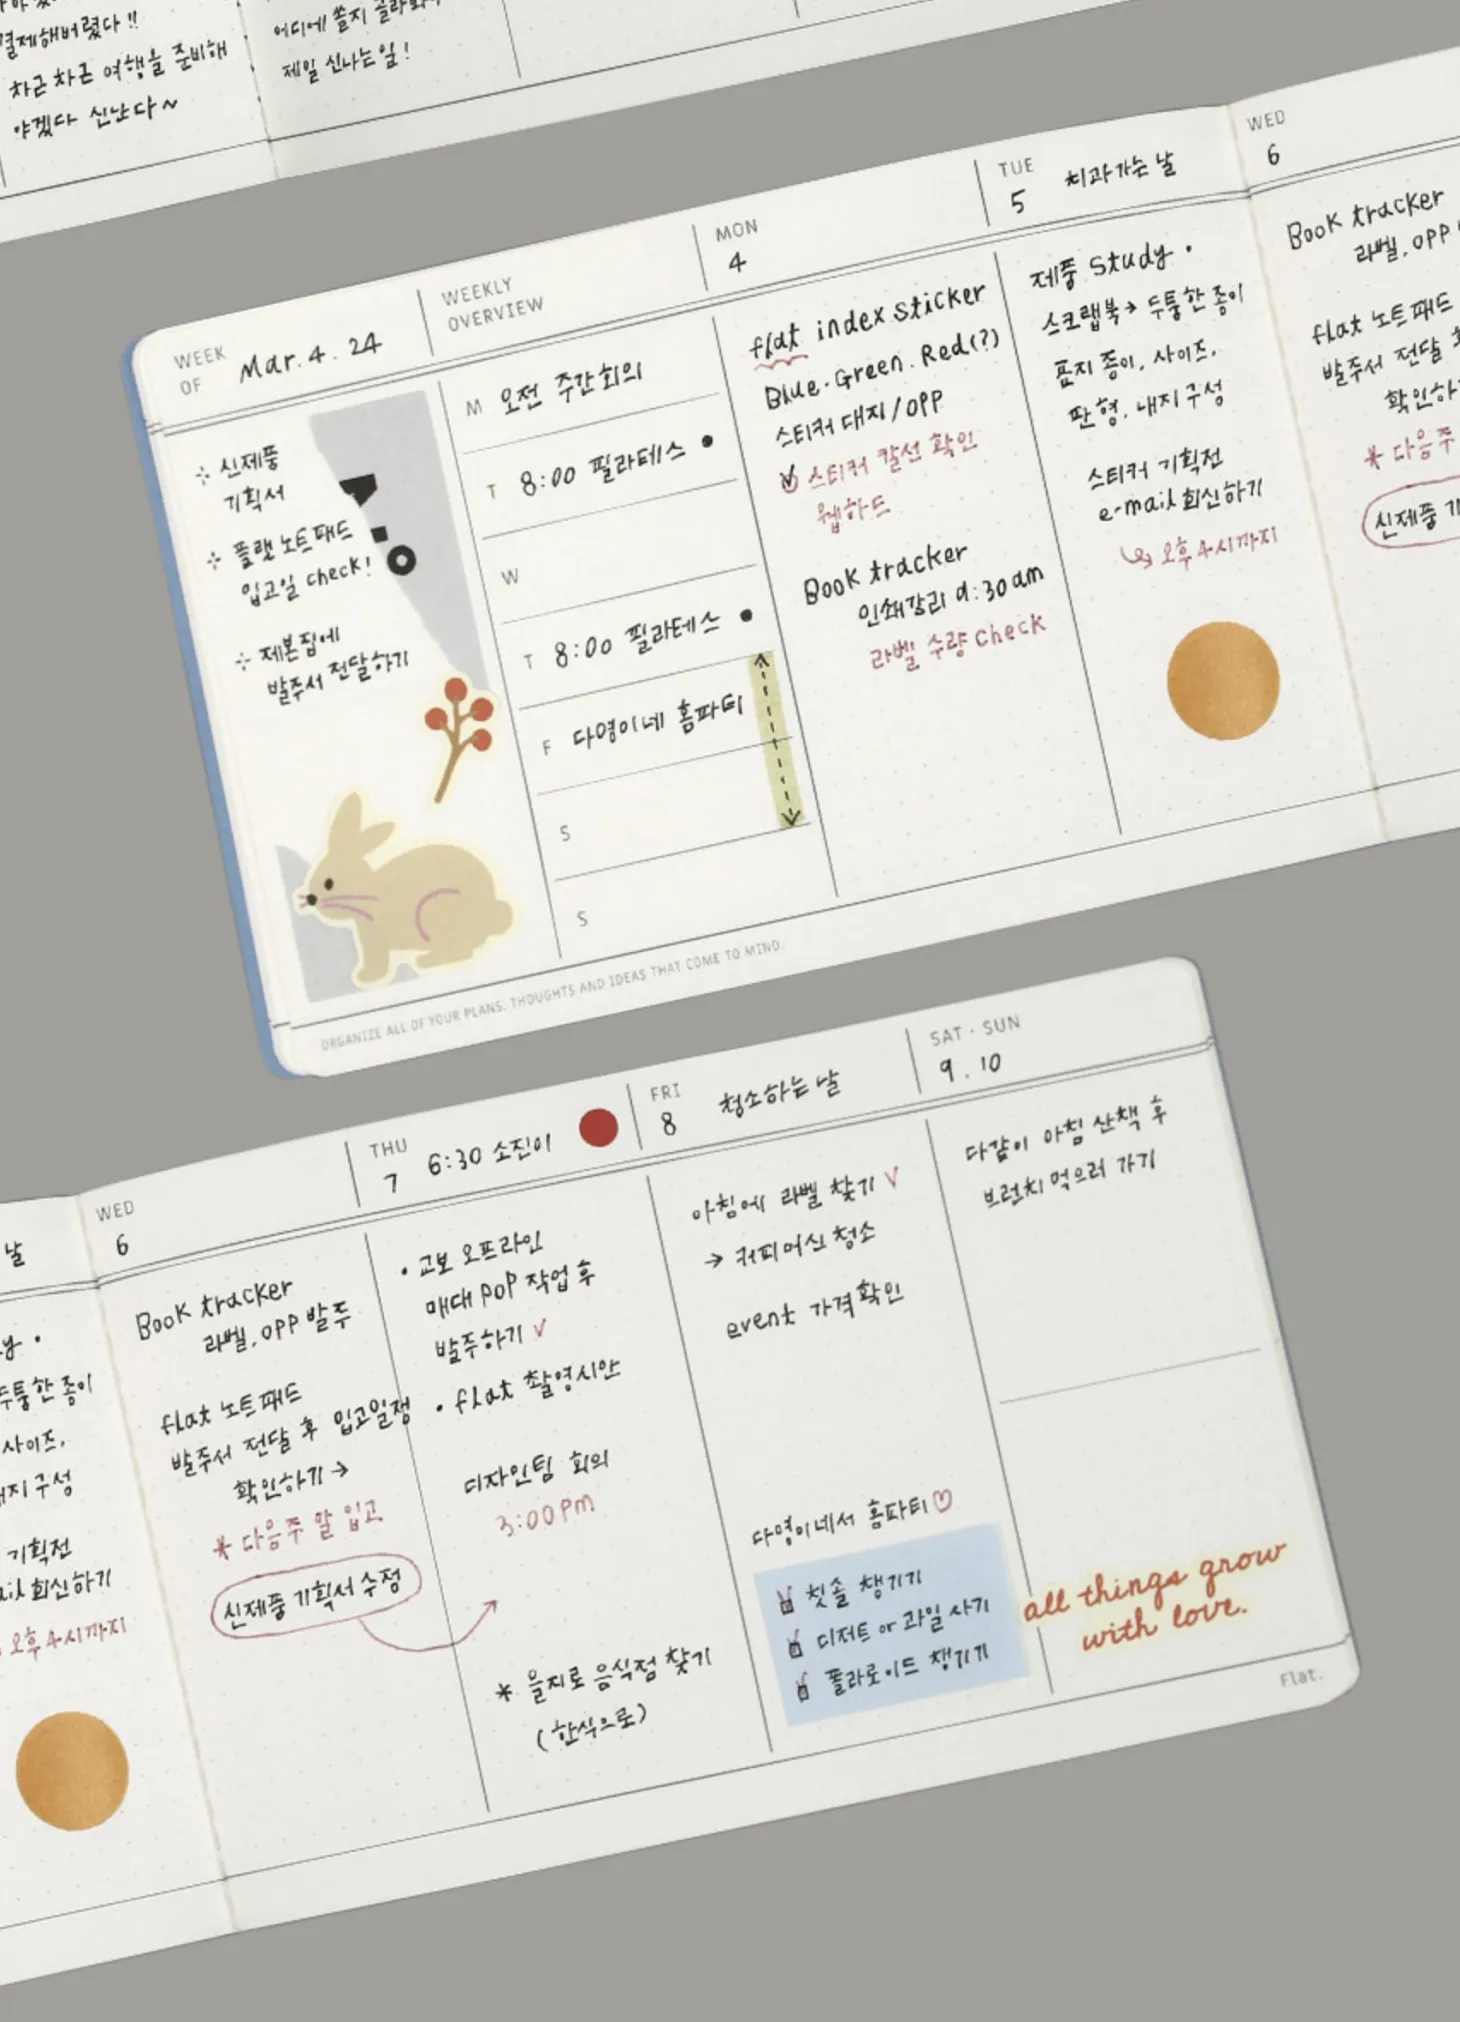 결제해버렸다!!
차근차근 여행을 준비해
야겠다 신난다~
어디에 쓸지 골라
제일 신나는 일!
WEEK OF
Mar. 4. 24
WEEKLY OVERVIEW
신제품
기획서
플랫 노트패드
입고일 check!
제본집에
발주서 전달하기
M 오전 주간회의
T 8:00 필라테스 •
W
T 8:00 필라테스 •
F 다영이네 홈파티
S
S
ORGANIZE ALL OF YOUR PLANS, THOUGHTS AND IDEAS THAT COME TO MIND.
MON
4
flat index sticker
Blue. Green. Red(?)
스티커 대지/OPP
스티커 칼선 확인
웹하드
Book tracker
인쇄감리 9:30am
라벨 수량 check
TUE
5 치과가는 날
제품 study •
스크랩북→ 두툼한 종이
표지 종이, 사이즈,
판형, 내지 구성
스티커 기획전
e-mail 회신하기
↳ 오후 4시까지
WED
6
Book tracker
라벨, OPP
flat 노트패드
발주서 전달
확인하
* 다음주
신제품 기
날
두툼한 종이
사이즈,
내지 구성
기획전
회신하기
오후 4시까지
WED
6
Book tracker
라벨, OPP 발주
flat 노트패드
발주서 전달 후 입고일정
확인하기 →
* 다음주 말 입고
신제품 기획서 수정
THU
7 6:30 소진이
• 교보 오프라인
매대 pop 작업 후
발주하기 √
• flat 촬영시안
디자인팀 회의
3:00pm
* 을지로 음식점 찾기
(한식으로)
FRI
8 청소하는 날
아침에 라벨 찾기 √
→ 커피머신 청소
event 가격확인
다영이네서 홈파티♡
칫솔 챙기기
디저트 or 과일 사기
폴라로이드 챙기기
SAT · SUN
9. 10
다같이 아침 산책 후
브런치 먹으러 가기
all things grow
with love.
Flat.